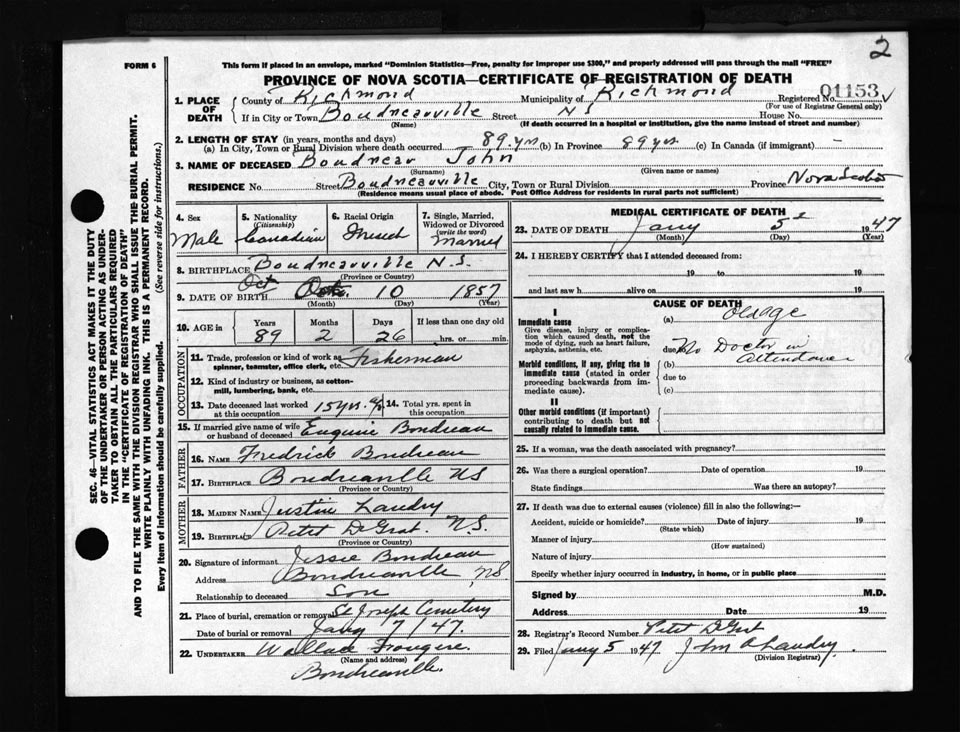 2
FORM 6
This form if placed in an envelope, marked "Dominion Statistics—Free, penalty for improper use $300," and properly addressed will pass through the mail "FREE"
PROVINCE OF NOVA SCOTIA—CERTIFICATE OF REGISTRATION OF DEATH
SEC. 46—VITAL STATISTICS ACT MAKES IT THE DUTY
OF THE UNDERTAKER OR PERSON ACTING AS UNDER-
TAKER TO OBTAIN ALL THE PARTICULARS REQUIRED
IN THE "CERTIFICATE OF REGISTRATION OF DEATH"
AND TO FILE THE SAME WITH THE DIVISION REGISTRAR WHO SHALL ISSUE THE BURIAL PERMIT.
WRITE PLAINLY WITH UNFADING INK. THIS IS A PERMANENT RECORD.
Every item of Information should be carefully supplied. (See reverse side for instructions.)
1. PLACE OF DEATH County of Richmond Municipality of Richmond Registered No. 01153
(For use of Registrar General only)
If in City or Town Boudreauville Street N S House No.
(Name) (If death occurred in a hospital or institution, give the name instead of street and number)
2. LENGTH OF STAY (in years, months and days)
(a) In City, Town or Rural Division where death occurred 89 yrs (b) In Province 89 yrs (c) In Canada (if immigrant) –
3. NAME OF DECEASED Boudreau John
(Surname) (Given name or names)
RESIDENCE No. Street Boudreauville City, Town or Rural Division Province Nova Scotia
(Residence means usual place of abode. Post Office Address for residents in rural parts not sufficient)
4. Sex Male
5. Nationality (Citizenship) Canadian
6. Racial Origin French
7. Single, Married, Widowed or Divorced (write the word) Married
8. BIRTHPLACE Boudreauville N.S.
(Province or Country)
Oct
9. DATE OF BIRTH 10 1857
(Month) (Day) (Year)
10. AGE in Years 89 Months 2 Days 26 If less than one day old hrs. or min.
OCCUPATION
11. Trade, profession or kind of work as spinner, teamster, office clerk, etc. Fisherman
12. Kind of industry or business, as cotton-mill, lumbering, bank, etc.
13. Date deceased last worked at this occupation 15 yrs.
14. Total yrs. spent in this occupation
15. If married give name of wife or husband of deceased Eugenie Boudreau
FATHER
16. NAME Fredrick Boudreau
17. BIRTHPLACE Boudreauville NS
(Province or Country)
MOTHER
18. MAIDEN NAME Justine Landry
19. BIRTHPLACE Petit DeGrat. N.S.
(Province or Country)
20. Signature of informant Jessie Boudreau
Address Boudreauville NS.
Relationship to deceased Son
21. Place of burial, cremation or removal St Joseph Cemetery
Date of burial or removal Jany 7/47.
22. UNDERTAKER Wallace Frougere.
(Name and address)
Boudreauville.
MEDICAL CERTIFICATE OF DEATH
23. DATE OF DEATH Jany 5 1947
(Month) (Day) (Year)
24. I HEREBY CERTIFY that I attended deceased from:
19 to 19
and last saw h alive on 19
CAUSE OF DEATH
I
Immediate cause
Give disease, injury or complication which caused death, not the mode of dying, such as heart failure, asphyxia, asthenia, etc.
(a) Old Age
due to No Doctor in
Attendance
Morbid conditions, if any, giving rise to immediate cause (stated in order proceeding backwards from immediate cause).
(b)
due to
(c)
II
Other morbid conditions (if important) contributing to death but not causally related to immediate cause.
25. If a woman, was the death associated with pregnancy?
26. Was there a surgical operation? Date of operation 19
State findings Was there an autopsy?
27. If death was due to external causes (violence) fill in also the following:—
Accident, suicide or homicide? Date of injury 19
(State which)
Manner of injury
(How sustained)
Nature of injury
Specify whether injury occurred in industry, in home, or in public place
Signed by M.D.
Address Date 19
28. Registrar's Record Number Petit DeGrat
29. Filed Jany 5 1947 J. M. A Landry.
(Division Registrar)